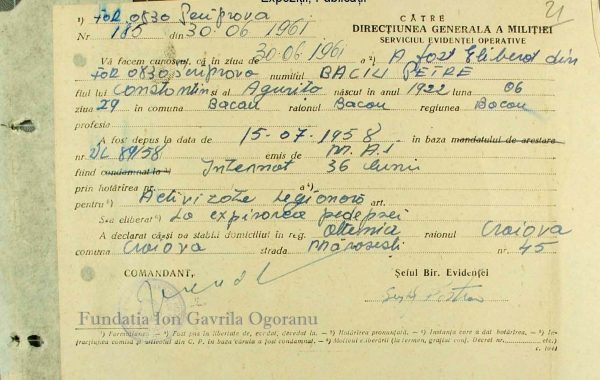 Expoziții, Publicații
21
1) FOR 0830 Periprava
Nr 185 din 30.06 1961
CĂTRE
DIRECȚIUNEA GENERALA A MILIȚIEI
SERVICIUL EVIDENȚEI OPERATIVE
Vă facem cunoscut, că în ziua de 30-06 1961 a 2) A fost Eliberat din
FOR 0830 Periprava numitul BACIU PETRE
fiul lui Constantin și al Agurița născut în anul 1922 luna 06
ziua 29 în comuna Bacau raionul Bacau regiunea Bacau
profesia
A fost depus la data de 15-07-1958 în baza mandatului de arestare
nr. 89/58 emis de M.A.I
fiind condamnat la 3) Internat 36 luni
prin hotărîrea nr. a 4)
pentru 5) Activizate legionară art.
S-a eliberat 6) La expirarea pedepsei
A declarat că-și va stabili domiciliul în reg. Oltenia raionul Craiova
comuna Craiova strada Mărăsesti nr. 45
COMANDANT,
Șeful Bir. Evidenței
Fundatia Ion Gavrila Ogoranu
1) Formațiunea. — 2) Fost pus în libertate, evadat, decedat la. — 3) Hotărîrea pronunțată. — 4) Instanța care a dat hotărîrea. — 5) In-
fracțiunea comisă și articolul din C. P. în baza căruia a fost condamnat. — 6) Motivul eliberării (la termen, grațiat conf. Decret nr. etc.)